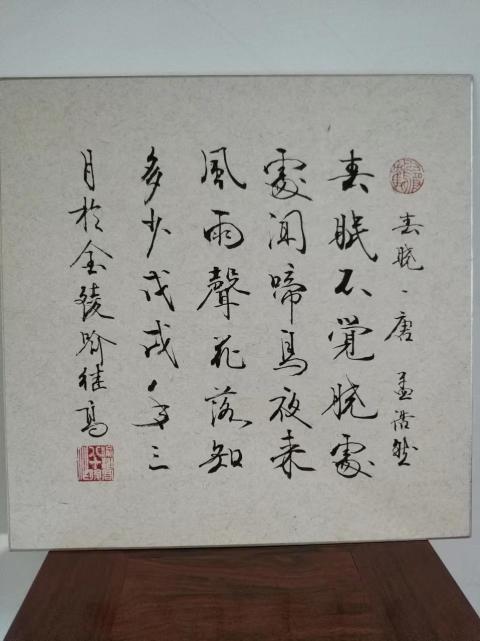 春晓、唐 孟浩然
春眠不覺晓處
處聞啼鳥夜来
風雨聲花落知
多少戊戌年三
月於金陵喻继高